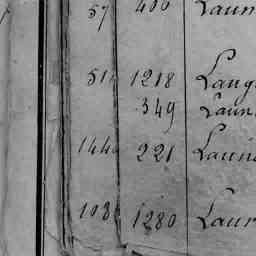 57 400 Laun
51 1218 Laug
349 Laun
144 221 Launa
108 1280 Laur